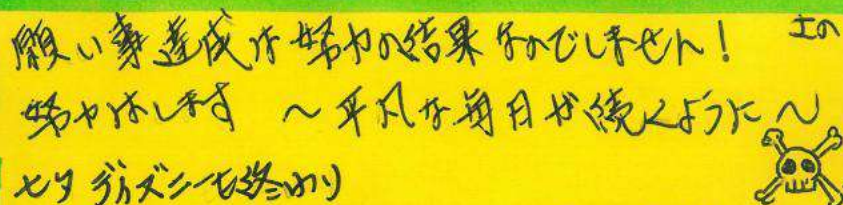 願い事達成は努力の結果なのでしません! エの
努力はします ～平凡な毎日が続くように～
七夕ディズニーも終わり